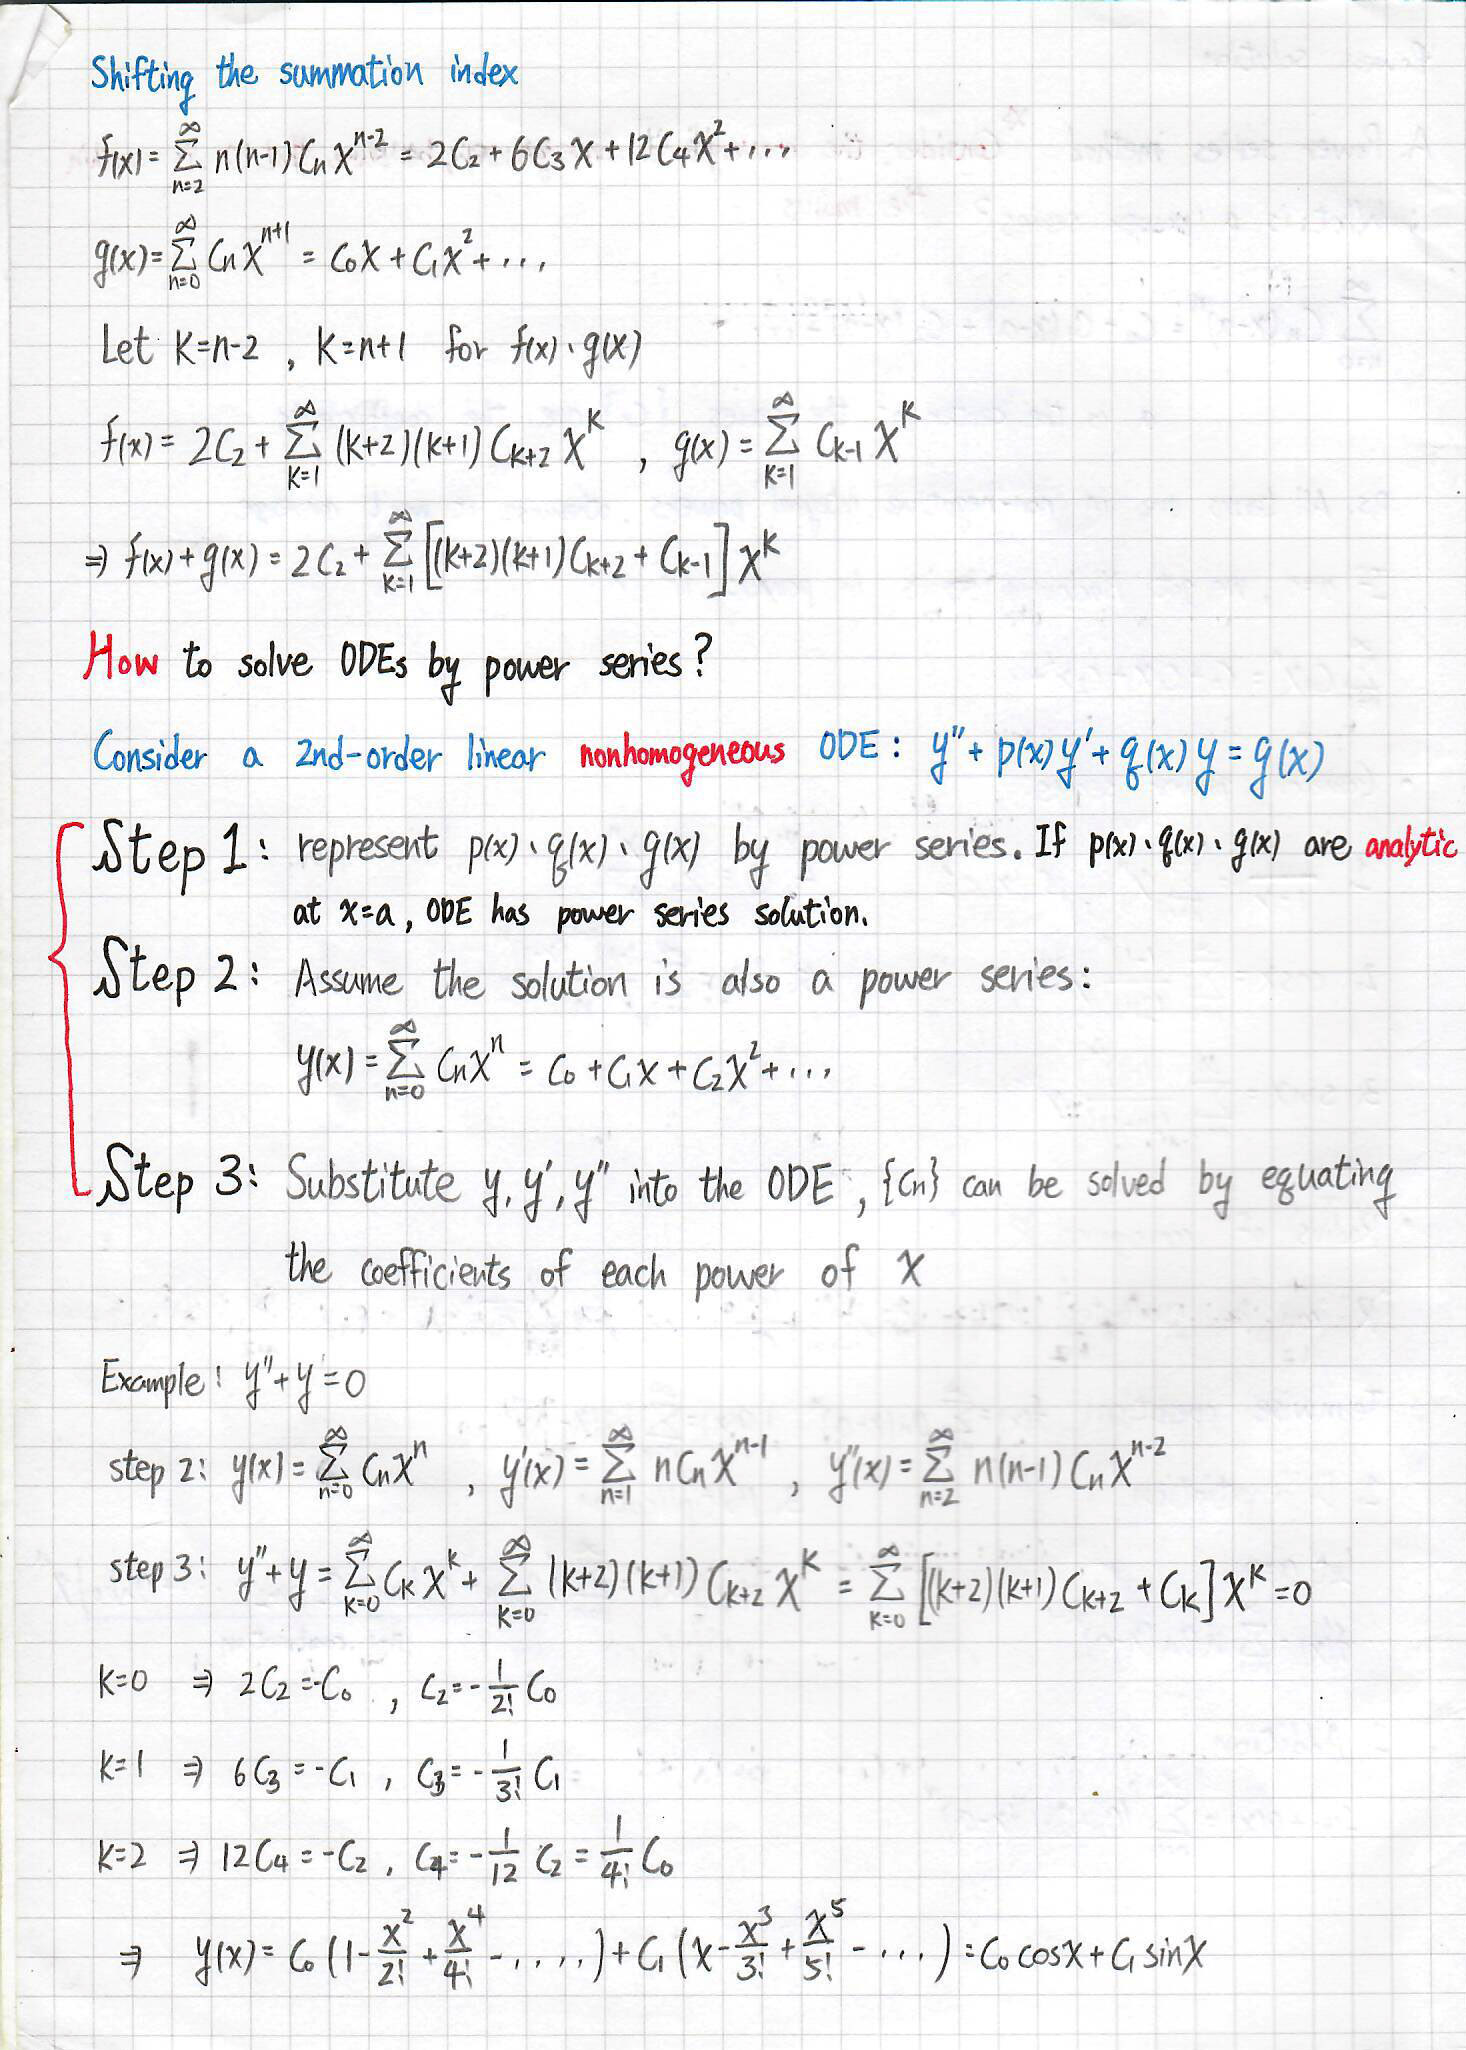 Shifting the summation index
f(x) = ∑_{n=2}^{∞} n(n-1) C_n x^{n-2} = 2C_2 + 6C_3 x + 12C_4 x^2 + ...
g(x) = ∑_{n=0}^{∞} C_n x^{n+1} = C_0 x + C_1 x^2 + ...
Let k=n-2 , k=n+1 for f(x)、g(x)
f(x) = 2C_2 + ∑_{k=1}^{∞} (k+2)(k+1) C_{k+2} x^k , g(x) = ∑_{k=1}^{∞} C_{k-1} x^k
⇒ f(x)+g(x) = 2C_2 + ∑_{k=1}^{∞} [(k+2)(k+1)C_{k+2} + C_{k-1}] x^k
How to solve ODEs by power series?
Consider a 2nd-order linear nonhomogeneous ODE: y''+p(x)y'+q(x)y=g(x)
Step 1: represent p(x)、q(x)、g(x) by power series. If p(x)、q(x)、g(x) are analytic
at x=a, ODE has power series solution.
Step 2: Assume the solution is also a power series:
y(x) = ∑_{n=0}^{∞} C_n x^n = C_0 + C_1 x + C_2 x^2 + ...
Step 3: Substitute y, y', y'' into the ODE, {C_n} can be solved by equating
the coefficients of each power of x
Example: y''+y=0
step 2: y(x) = ∑_{n=0}^{∞} C_n x^n , y'(x) = ∑_{n=1}^{∞} n C_n x^{n-1} , y''(x) = ∑_{n=2}^{∞} n(n-1) C_n x^{n-2}
step 3: y''+y = ∑_{k=0}^{∞} C_k x^k + ∑_{k=0}^{∞} (k+2)(k+1) C_{k+2} x^k = ∑_{k=0}^{∞} [(k+2)(k+1) C_{k+2} + C_k] x^k = 0
k=0 ⇒ 2C_2 = -C_0 , C_2 = -1/2! C_0
k=1 ⇒ 6C_3 = -C_1 , C_3 = -1/3! C_1
k=2 ⇒ 12C_4 = -C_2 , C_4 = -1/12 C_2 = 1/4! C_0
⇒ y(x) = C_0 (1 - x^2/2! + x^4/4! - .....) + C_1 (x - x^3/3! + x^5/5! - ...) = C_0 cosx + C_1 sinx